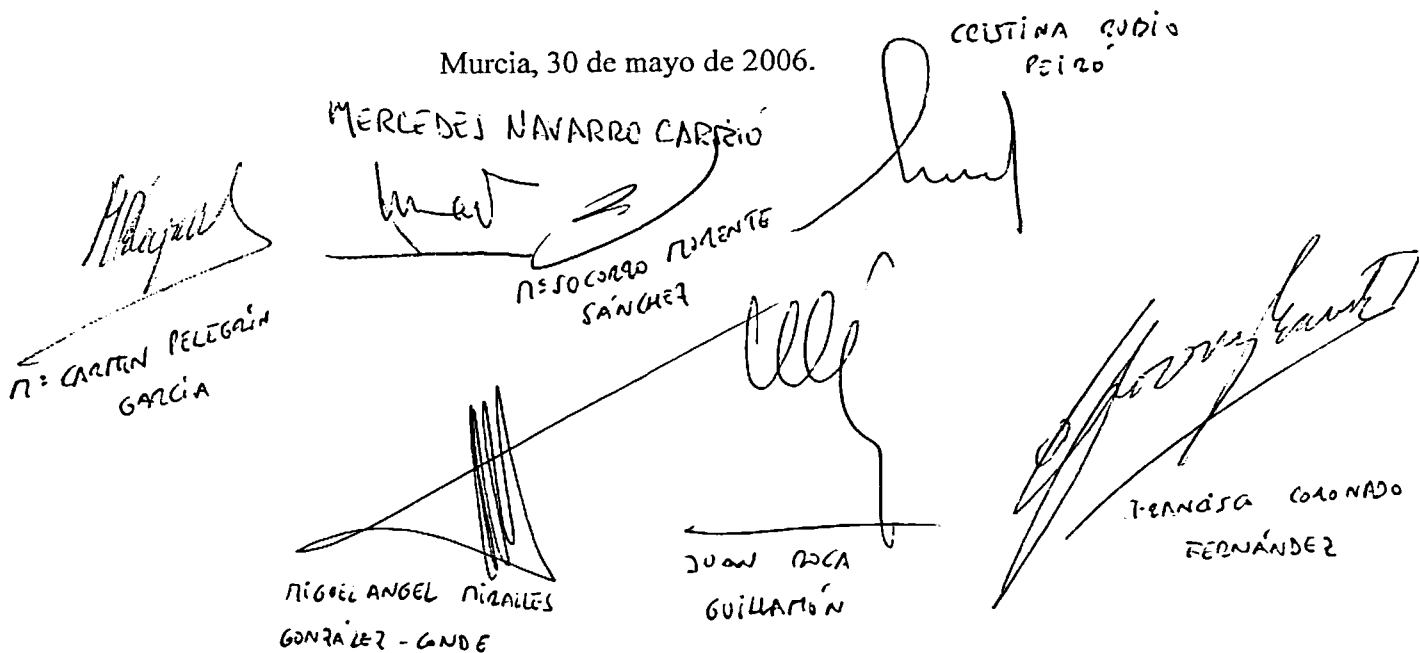 CRISTINA RUBIO
PEIRÓ
Murcia, 30 de mayo de 2006.
MERCEDES NAVARRO CARRIÓ
Mª SOCORRO MORENTE
SÁNCHEZ
Mª CARMEN PELEGRÍN
GARCÍA
MIGUEL ANGEL MIRALLES
GONZÁLEZ - CONDE
JUAN ROCA
GUILLAMÓN
FRANCISCA CORONADO
FERNÁNDEZ